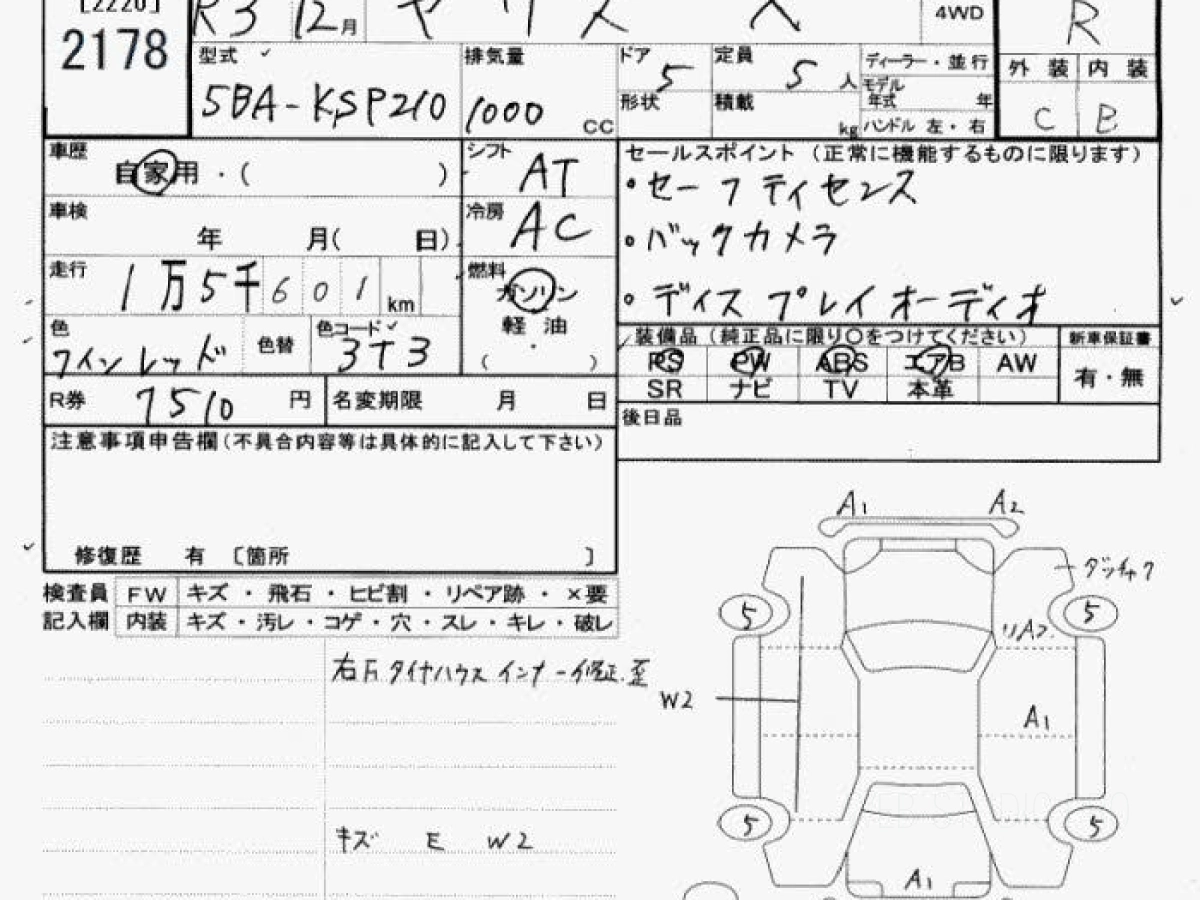 [2220]
2178
R3 12月 ヤリス 4WD R
型式 5BA-KSP210
排気量 1000 CC
ドア 5
形状
定員 5 人
積載 kg
ディーラー・並行
モデル年式 年
ハンドル 左・右
外装 内装
C B
車歴 自家用 ・( )
シフト AT
車検 年 月( 日)
冷房 AC
走行 1万5千601 km
燃料 ガソリン
軽油
( ・ )
色 ワインレッド
色替
色コード 3T3
セールスポイント(正常に機能するものに限ります)
・セーフティセンス
・バックカメラ
・ディスプレイオーディオ
装備品(純正品に限り○をつけてください)
PS PW ABS エアB AW
SR ナビ TV 本革
新車保証書
有・無
R券 7510 円
名変期限 月 日
後日品
注意事項申告欄(不具合内容等は具体的に記入して下さい)
修復歴 有 〔箇所 〕
検査員 FW キズ・飛石・ヒビ割・リペア跡・×要
記入欄 内装 キズ・汚レ・コゲ・穴・スレ・キレ・破レ
右F タイヤハウス インナー修正.歪
キズ E W2
A1 A2
ダッチャク
5 5
リA2
W2
A1
5 5
A1